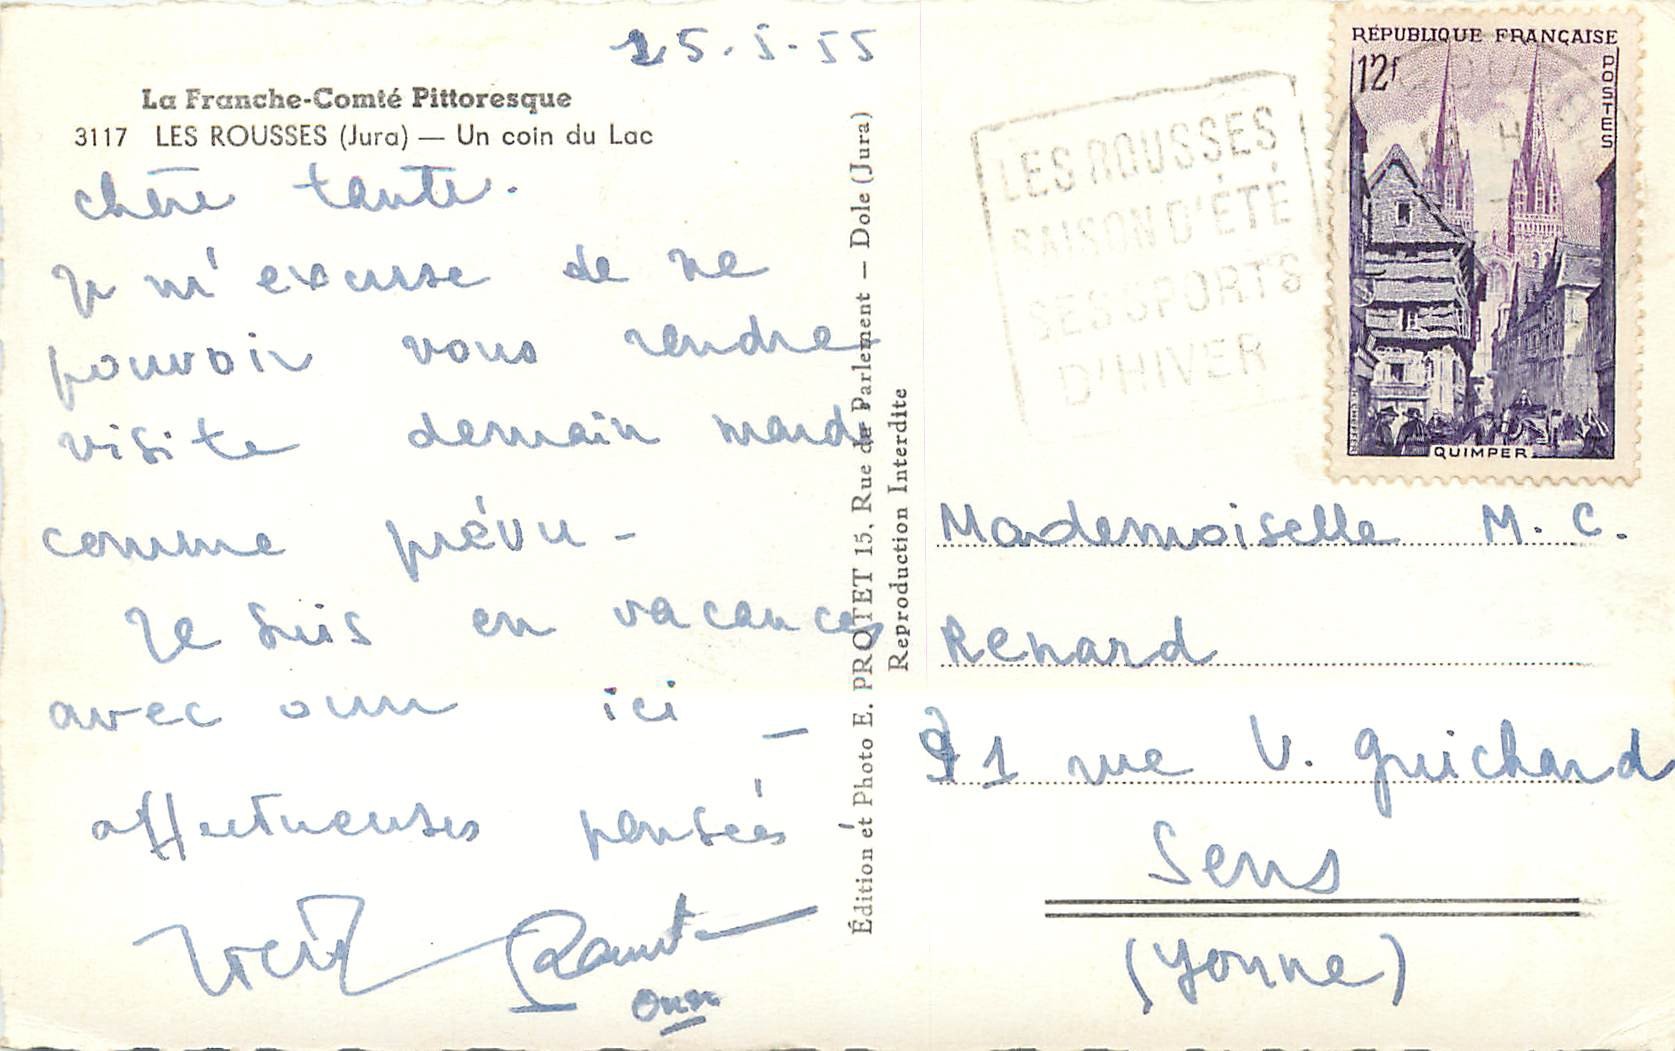 25-5-55
La Franche-Comté Pittoresque
3117 LES ROUSSES (Jura) — Un coin du Lac
chère tante.
Je m'excuse de ne
pouvoir vous rendre
visite demain mardi
comme prévu -
Je suis en vacances
avec ici -
affectueuses pensées
Édition et Photo E. PROTET 15, Rue du Parlement — Dole (Jura)
Reproduction Interdite
LES ROUSSES
SAISON D'ÉTÉ
SES SPORTS
D'HIVER
RÉPUBLIQUE FRANÇAISE
12f
POSTES
QUIMPER
Mademoiselle M. C.
Renard
21 rue V. Guichard
Sens
(Yonne)